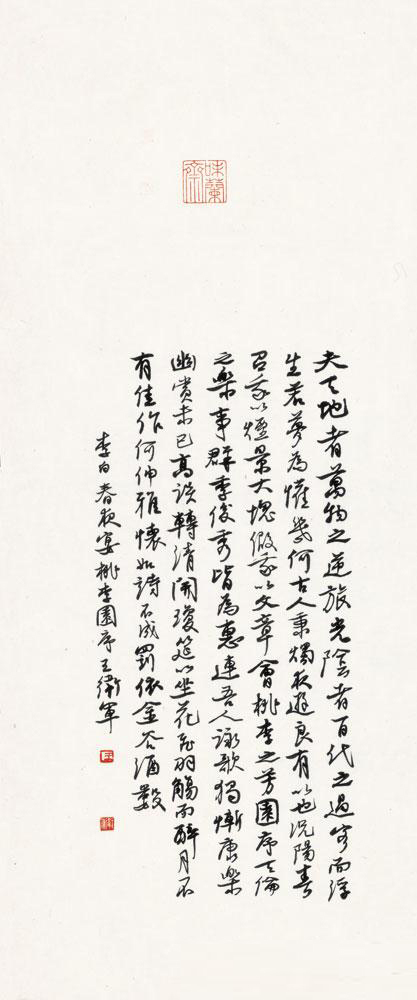 味蘭齋
夫天地者萬物之逆旅光陰者百代之過客而浮
生若夢為懽幾何古人秉燭夜遊良有以也況陽春
召我以煙景大塊假我以文章會桃李之芳園序天倫
之樂事群季俊秀皆為惠連吾人詠歌獨慚康樂
幽賞未已高談轉清開瓊筵以坐花飛羽觴而醉月不
有佳作何伸雅懷如詩不成罰依金谷酒數
李白春夜宴桃李園序王衛軍
王